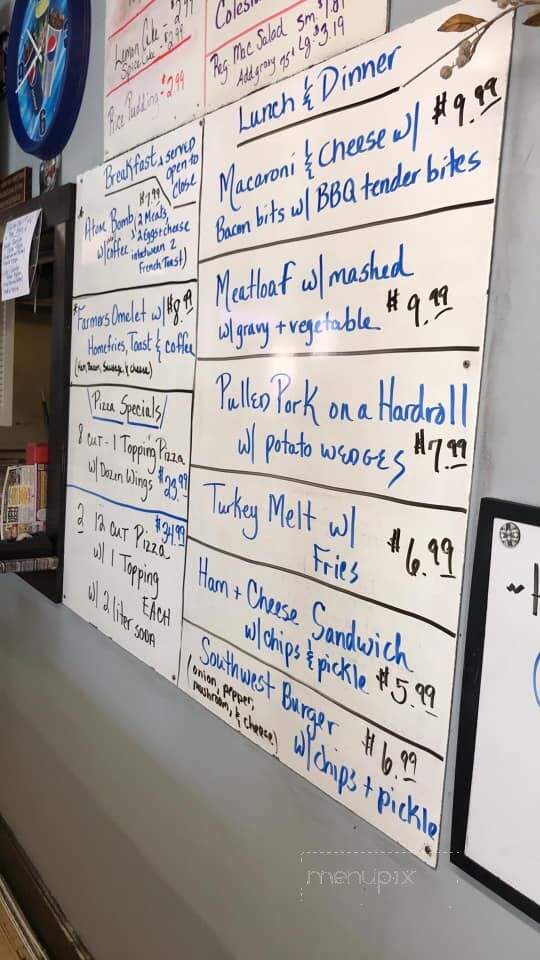 Lemon Cake - $2.99
Spice Cake - $2.99
Rice Pudding - $2.99
Reg. Mac Salad Sm. $1.81
Lg. $3.19
Add gravy .75¢
Breakfast served
open to
close
Atom Bomb $7.99
w/coffee (2 Meats,
2 eggs & cheese
inbetween 2
French Toast)
Farmers Omelet w/ $8.99
Homefries, Toast & coffee
(Ham, Bacon, Sausage, & cheese)
Pizza Specials
8 cut - 1 Topping Pizza
w/ Dozen Wings $23.99
2 12 cut Pizza $34.99
w/ 1 Topping
EACH
w/ 2 liter soda
Lunch & Dinner
Macaroni & Cheese w/ $9.99
Bacon bits w/ BBQ tender bites
Meatloaf w/ mashed
w/ gravy + vegetable $9.99
Pulled Pork on a Hardroll
w/ potato wedges $7.99
Turkey Melt w/
Fries $6.99
Ham + Cheese Sandwich
w/chips & pickle $5.99
Southwest Burger
(onion, pepper,
mushroom, & cheese) $6.99
w/chips + pickle
menupix